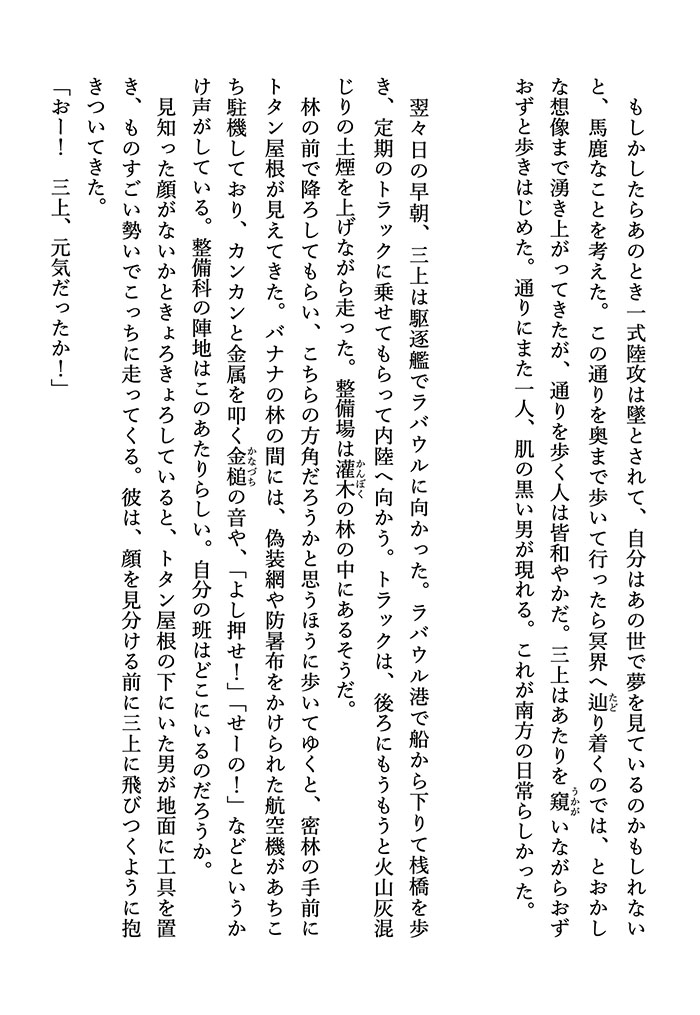 もしかしたらあのとき一式陸攻は墜とされて、自分はあの世で夢を見ているのかもしれない
と、馬鹿なことを考えた。この通りを奥まで歩いて行ったら冥界へ辿り着くのでは、とおかし
な想像まで湧き上がってきたが、通りを歩く人は皆和やかだ。三上はあたりを窺いながらおず
おずと歩きはじめた。通りにまた一人、肌の黒い男が現れる。これが南方の日常らしかった。
　翌々日の早朝、三上は駆逐艦でラバウルに向かった。ラバウル港で船から下りて桟橋を歩
き、定期のトラックに乗せてもらって内陸へ向かう。トラックは、後ろにもうもうと火山灰混
じりの土煙を上げながら走った。整備場は灌木の林の中にあるそうだ。
　林の前で降ろしてもらい、こちらの方角だろうかと思うほうに歩いてゆくと、密林の手前に
トタン屋根が見えてきた。バナナの林の間には、偽装網や防暑布をかけられた航空機があちこ
ち駐機しており、カンカンと金属を叩く金槌の音や、「よし押せ！」「せーの！」などというか
け声がしている。整備科の陣地はこのあたりらしい。自分の班はどこにいるのだろうか。
　見知った顔がないかときょろきょろしていると、トタン屋根の下にいた男が地面に工具を置
き、ものすごい勢いでこっちに走ってくる。彼は、顔を見分ける前に三上に飛びつくように抱
きついてきた。
「おー！　三上、元気だったか！」